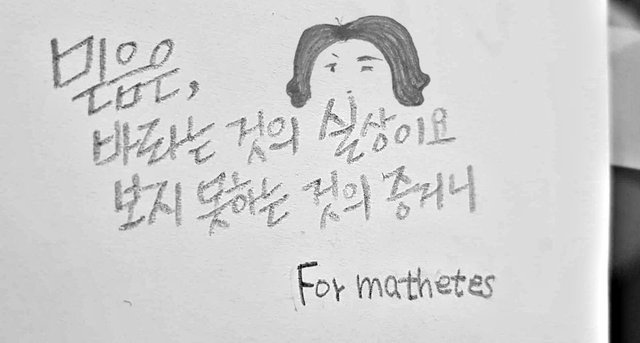 믿음은,
바라는 것의 실상이요
보지 못하는 것의 증거니
For mathetes